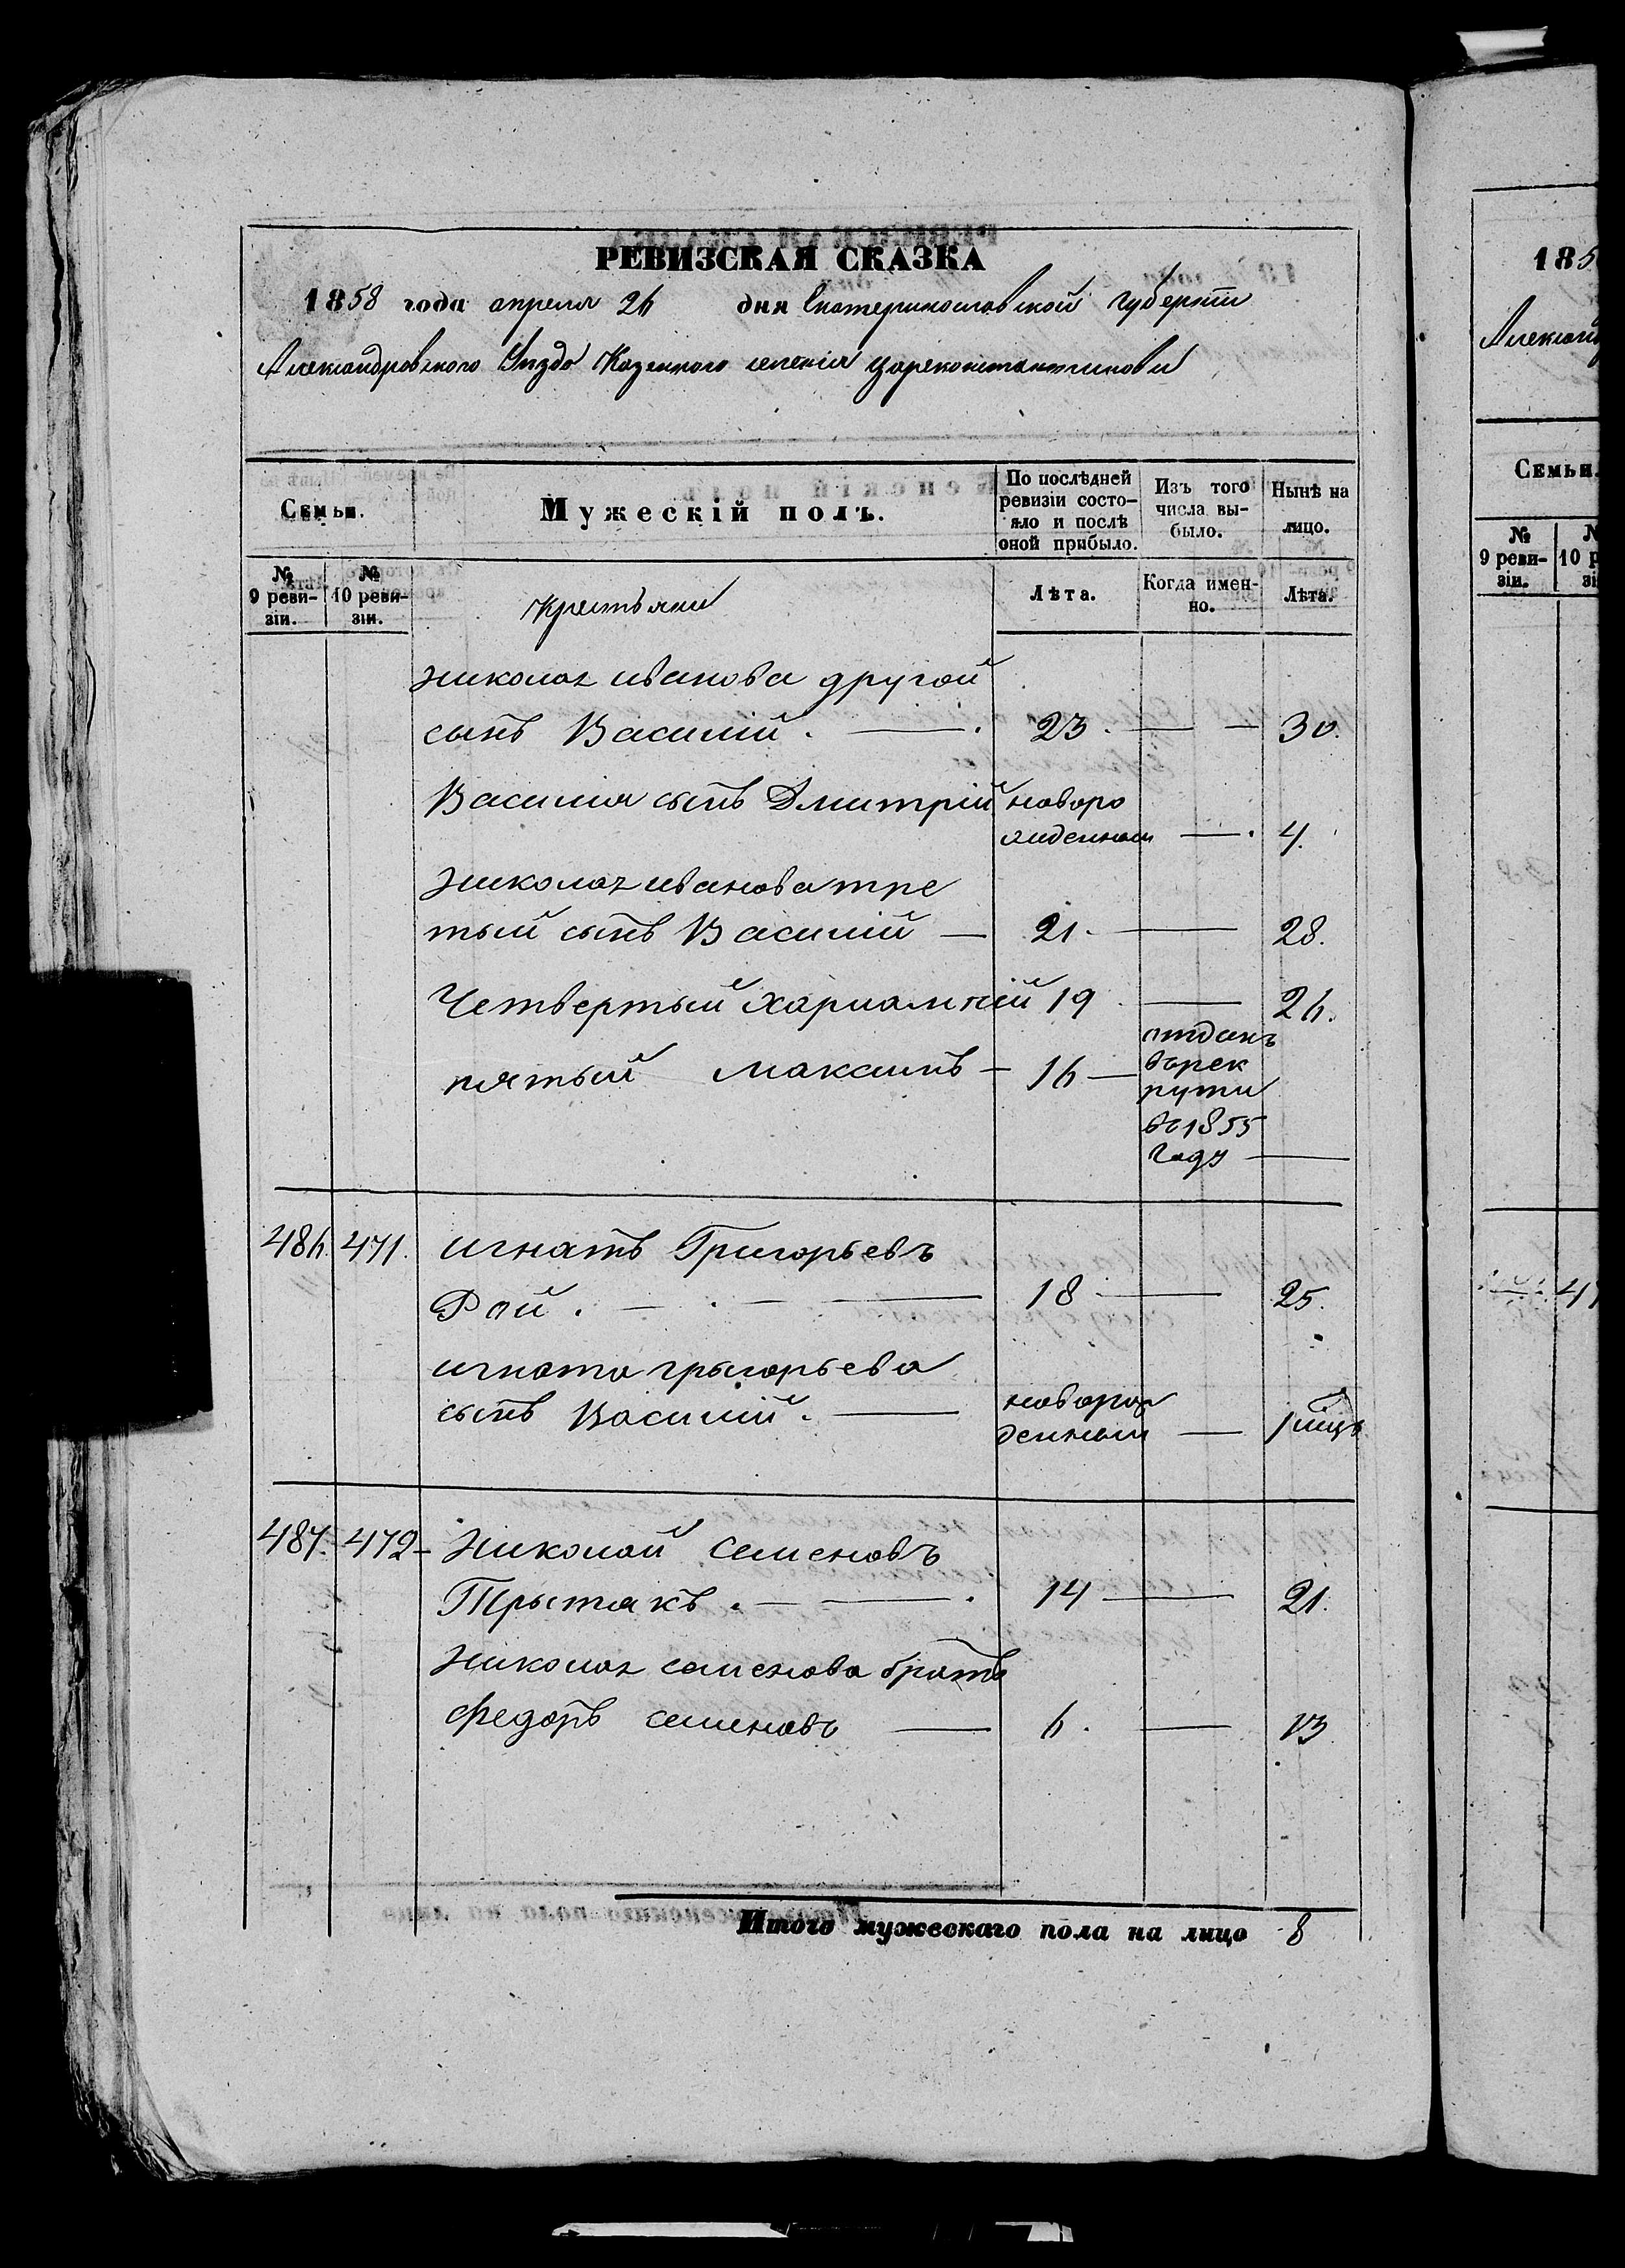 РЕВИЗСКАЯ СКАЗКА
1858 года апреля 26 дня Екатеринославской губерніи
Александровского Уѣзда Казенного селенія Цареконстантиновки
Семьи.
Мужескій полъ.
По послѣдней ревизіи состо-
яло и послѣ оной прибыло.
Изъ того числа вы-
было.
Нынѣ на лицо.
№ 9 реви-
зіи.
№ 10 реви-
зіи.
Крестьяни
Лѣта.
Когда имен-
но.
Лѣта.
Николая иванова другой
сынъ Василій. — 23. — — 30.
Василия сынъ Дмитрій новоро
жденный — 4.
Николая иванова тре
тый сынъ Василій — 21. — 28.
Четвертый Харлампій 19 — 26.
пятый максимъ — 16 — отданъ
въ рек
руты
въ 1855
году —
486. 471. игнатъ Григорьевъ
Рой. — 18 — 25.
игната григорьева
сынъ Василій. — новорож
денный — 1 мѣць
487. 472 — Николай семеновъ
Трытякъ. — 14 — 21.
Николая семенова братъ
Федоръ семеновъ — 6. — 13
Итого мужескаго пола на лицо 8
185
Александ
Семьи.
№ 9 реви-
зіи.
№
10 р
зі
47